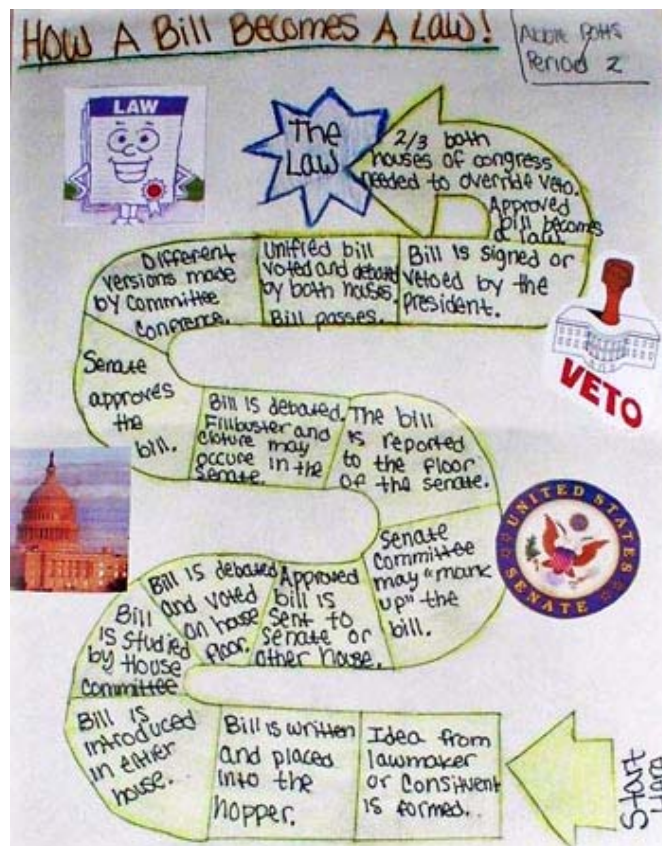 How A Bill Becomes A Law!
Period 2
LAW
The
Law
2/3 both
houses of congress
needed to override veto.
Approved
bill becomes
a law.
Different
versions made
by Committee
Confrence.
Unified bill
voted and debated
by both houses.
Bill passes.
Bill is signed or
vetoed by the
president.
VETO
Senate
approves
the
bill.
Bill is debated.
Fillbuster and
cloture may
occure in the
Senate.
The bill
is reported
to the floor
of the senate.
UNITED STATES
SENATE
Senate
Committee
may "mark
up" the
bill.
Approved
bill is
sent to
senate or
other house.
Bill is debated
and voted
on house
floor.
Bill
is studied
by House
Committee
Bill is
introduced
in either
house.
Bill is written
and placed
into the
hopper.
Idea from
lawmaker
or Consituent
is formed.
Start
Here